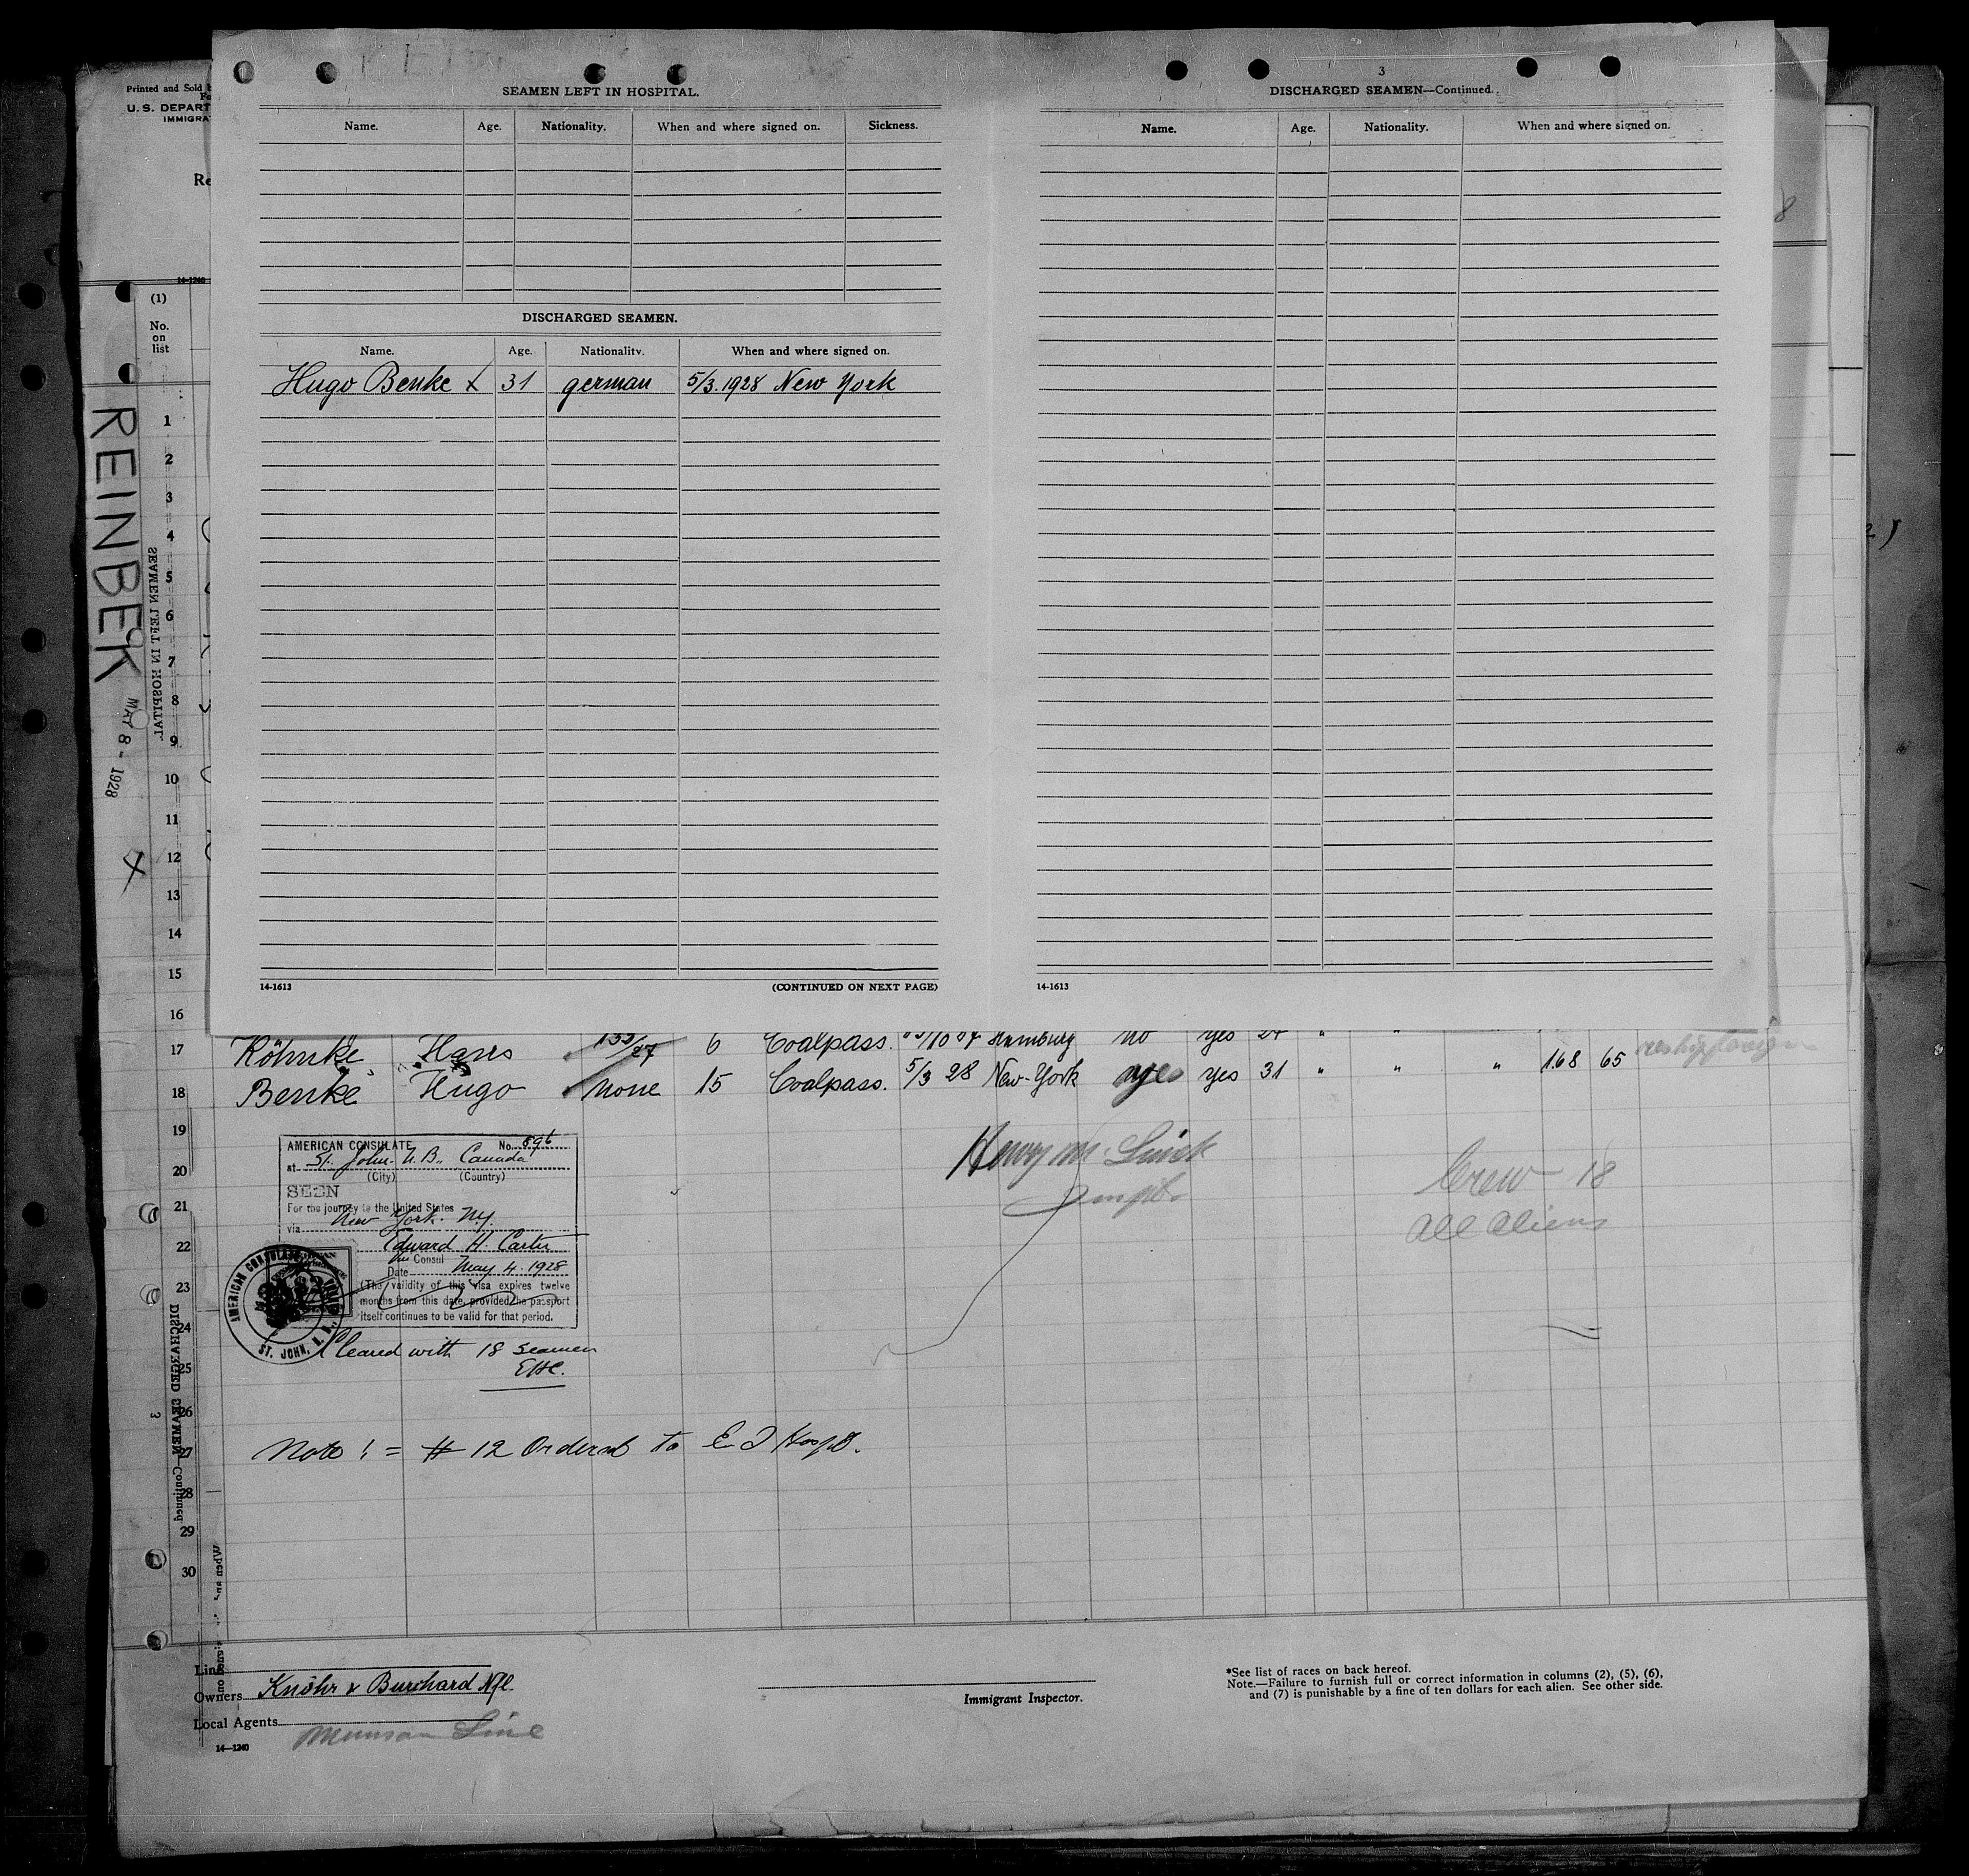 SEAMEN LEFT IN HOSPITAL.
Name. Age. Nationality. When and where signed on. Sickness.
DISCHARGED SEAMEN.
Name. Age. Nationality. When and where signed on.
Hugo Benke x 31 german 5/3.1928 New York
14-1613 (CONTINUED ON NEXT PAGE)
3
DISCHARGED SEAMEN—Continued.
Name. Age. Nationality. When and where signed on.
14-1613
Printed and Sold
U. S. DEPART
IMMIGRA
Re
14-1240
(1)
No.
on
list
REINBEK
MAY 8 - 1928
X
SEAMEN LEFT IN HOSPITAL.
DISCHARGED SEAMEN—Continued
3
1
2
3
4
5
6
7
8
9
10
11
12
13
14
15
16
17 Köhnke, Hans 133/27 6 Coalpass. Hamburg no yes 24 "
18 Benke Hugo none 15 Coalpass. 5/3 28 New-York yes yes 31 " " " 168 65
19
20
21
22
23
24
25
26
27
28
29
30
AMERICAN CONSULATE No. 896
at St. John N.B., Canada
(City) (Country)
SEEN
For the journey to the United States
via New York. N.Y.
Edward H. Carter
Consul
Date May 4. 1928
(The validity of this visa expires twelve
months from this date, provided the passport
itself continues to be valid for that period.
AMERICAN CONSULATE
ST. JOHN, N.B.
Cleared with 18 seamen
EHC.
Henry M.
Crew 18
all aliens
Note ! = # 12 Ordered to E I Hospt.
Line
Owners Knöhr & Burchard Nfl.
Local Agents Munson Line
14—1240
Immigrant Inspector.
*See list of races on back hereof.
Note.—Failure to furnish full or correct information in columns (2), (5), (6),
and (7) is punishable by a fine of ten dollars for each alien. See other side.